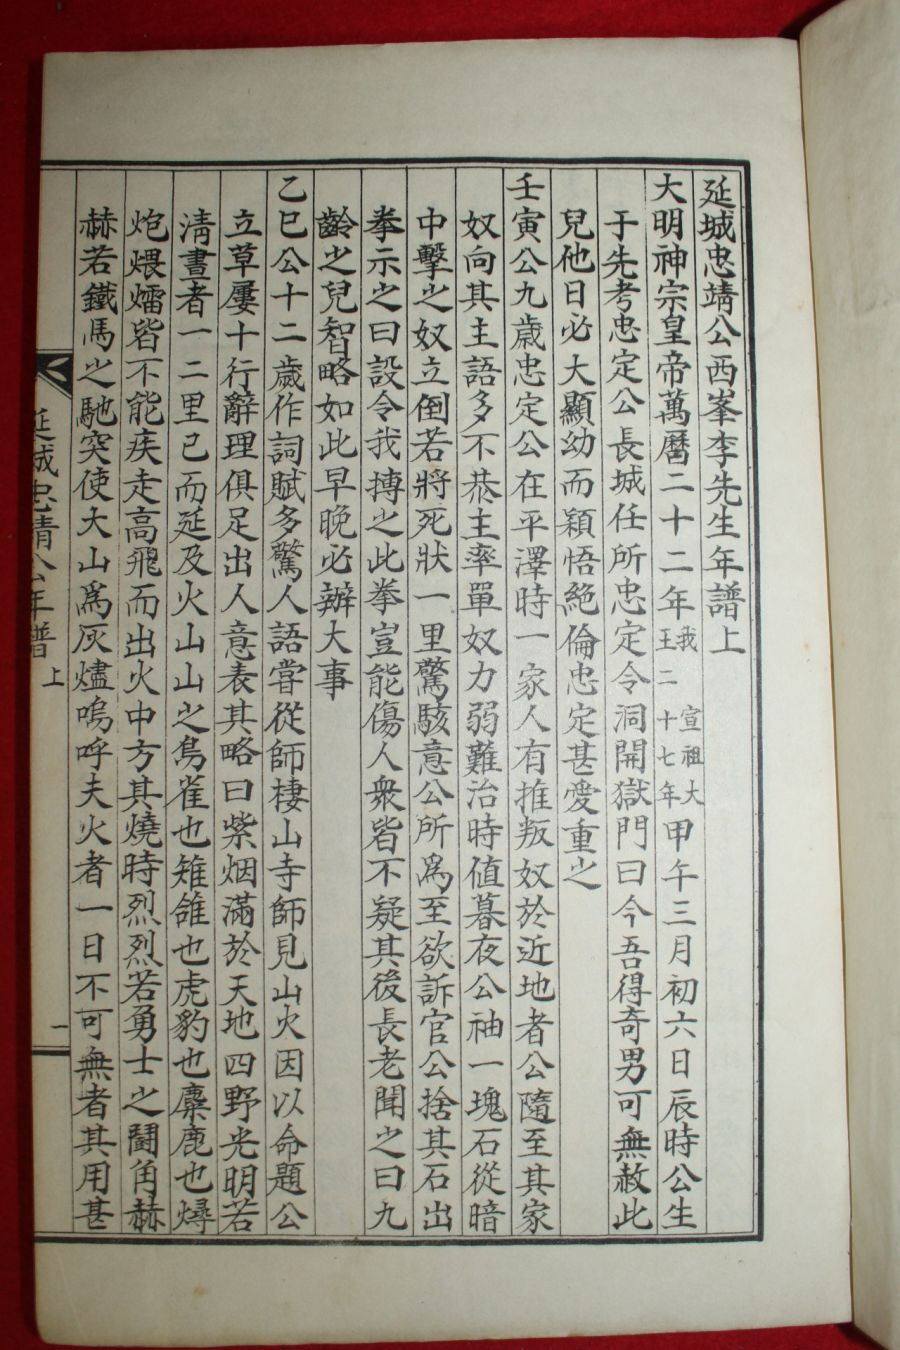 延城忠靖公西峯李先生年譜上
大明神宗皇帝萬曆二十二年我 宣祖大王二十七年甲午三月初六日辰時公生
于先考忠定公長城任所忠定令洞開獄門曰今吾得奇男可無赦此
兒他日必大顯幼而穎悟絶倫忠定甚愛重之
壬寅公九歲忠定公在平澤時一家人有推叛奴於近地者公隨至其家
奴向其主語多不恭主率單奴力弱難治時値暮夜公袖一塊石從暗
中擊之奴立倒若將死狀一里驚駭意公所爲至欲訴官公捨其石出
拳示之曰設令我搏之此拳豈能傷人衆皆不疑其後長老聞之曰九
齡之兒智略如此早晩必辦大事
乙巳公十二歲作詞賦多驚人語嘗從師棲山寺師見山火因以命題公
立草屢十行辭理俱足出人意表其略曰紫烟滿於天地四野光明若
淸晝者一二里已而延及火山山之鳥雀也雉雊也虎豹也麋鹿也燖
炮煨燔皆不能疾走高飛而出火中方其燒時烈烈若勇士之鬪角赫
赫若鐵馬之馳突使大山爲灰燼嗚呼夫火者一日不可無者其用甚
延城忠靖公年譜 上 一